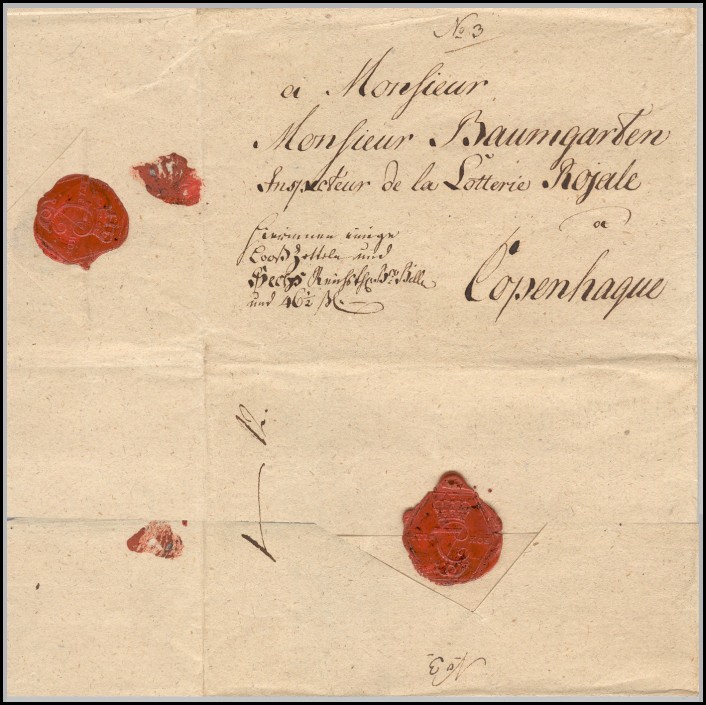 No 3
a Monsieur
Monsieur Baumgarten
Inspecteur de la Lotterie Rojale
a
Copenhague
Hierinnen einige
Looß Zetteln und
Sechs Reichsthr
und 46½ ßl.
No 3